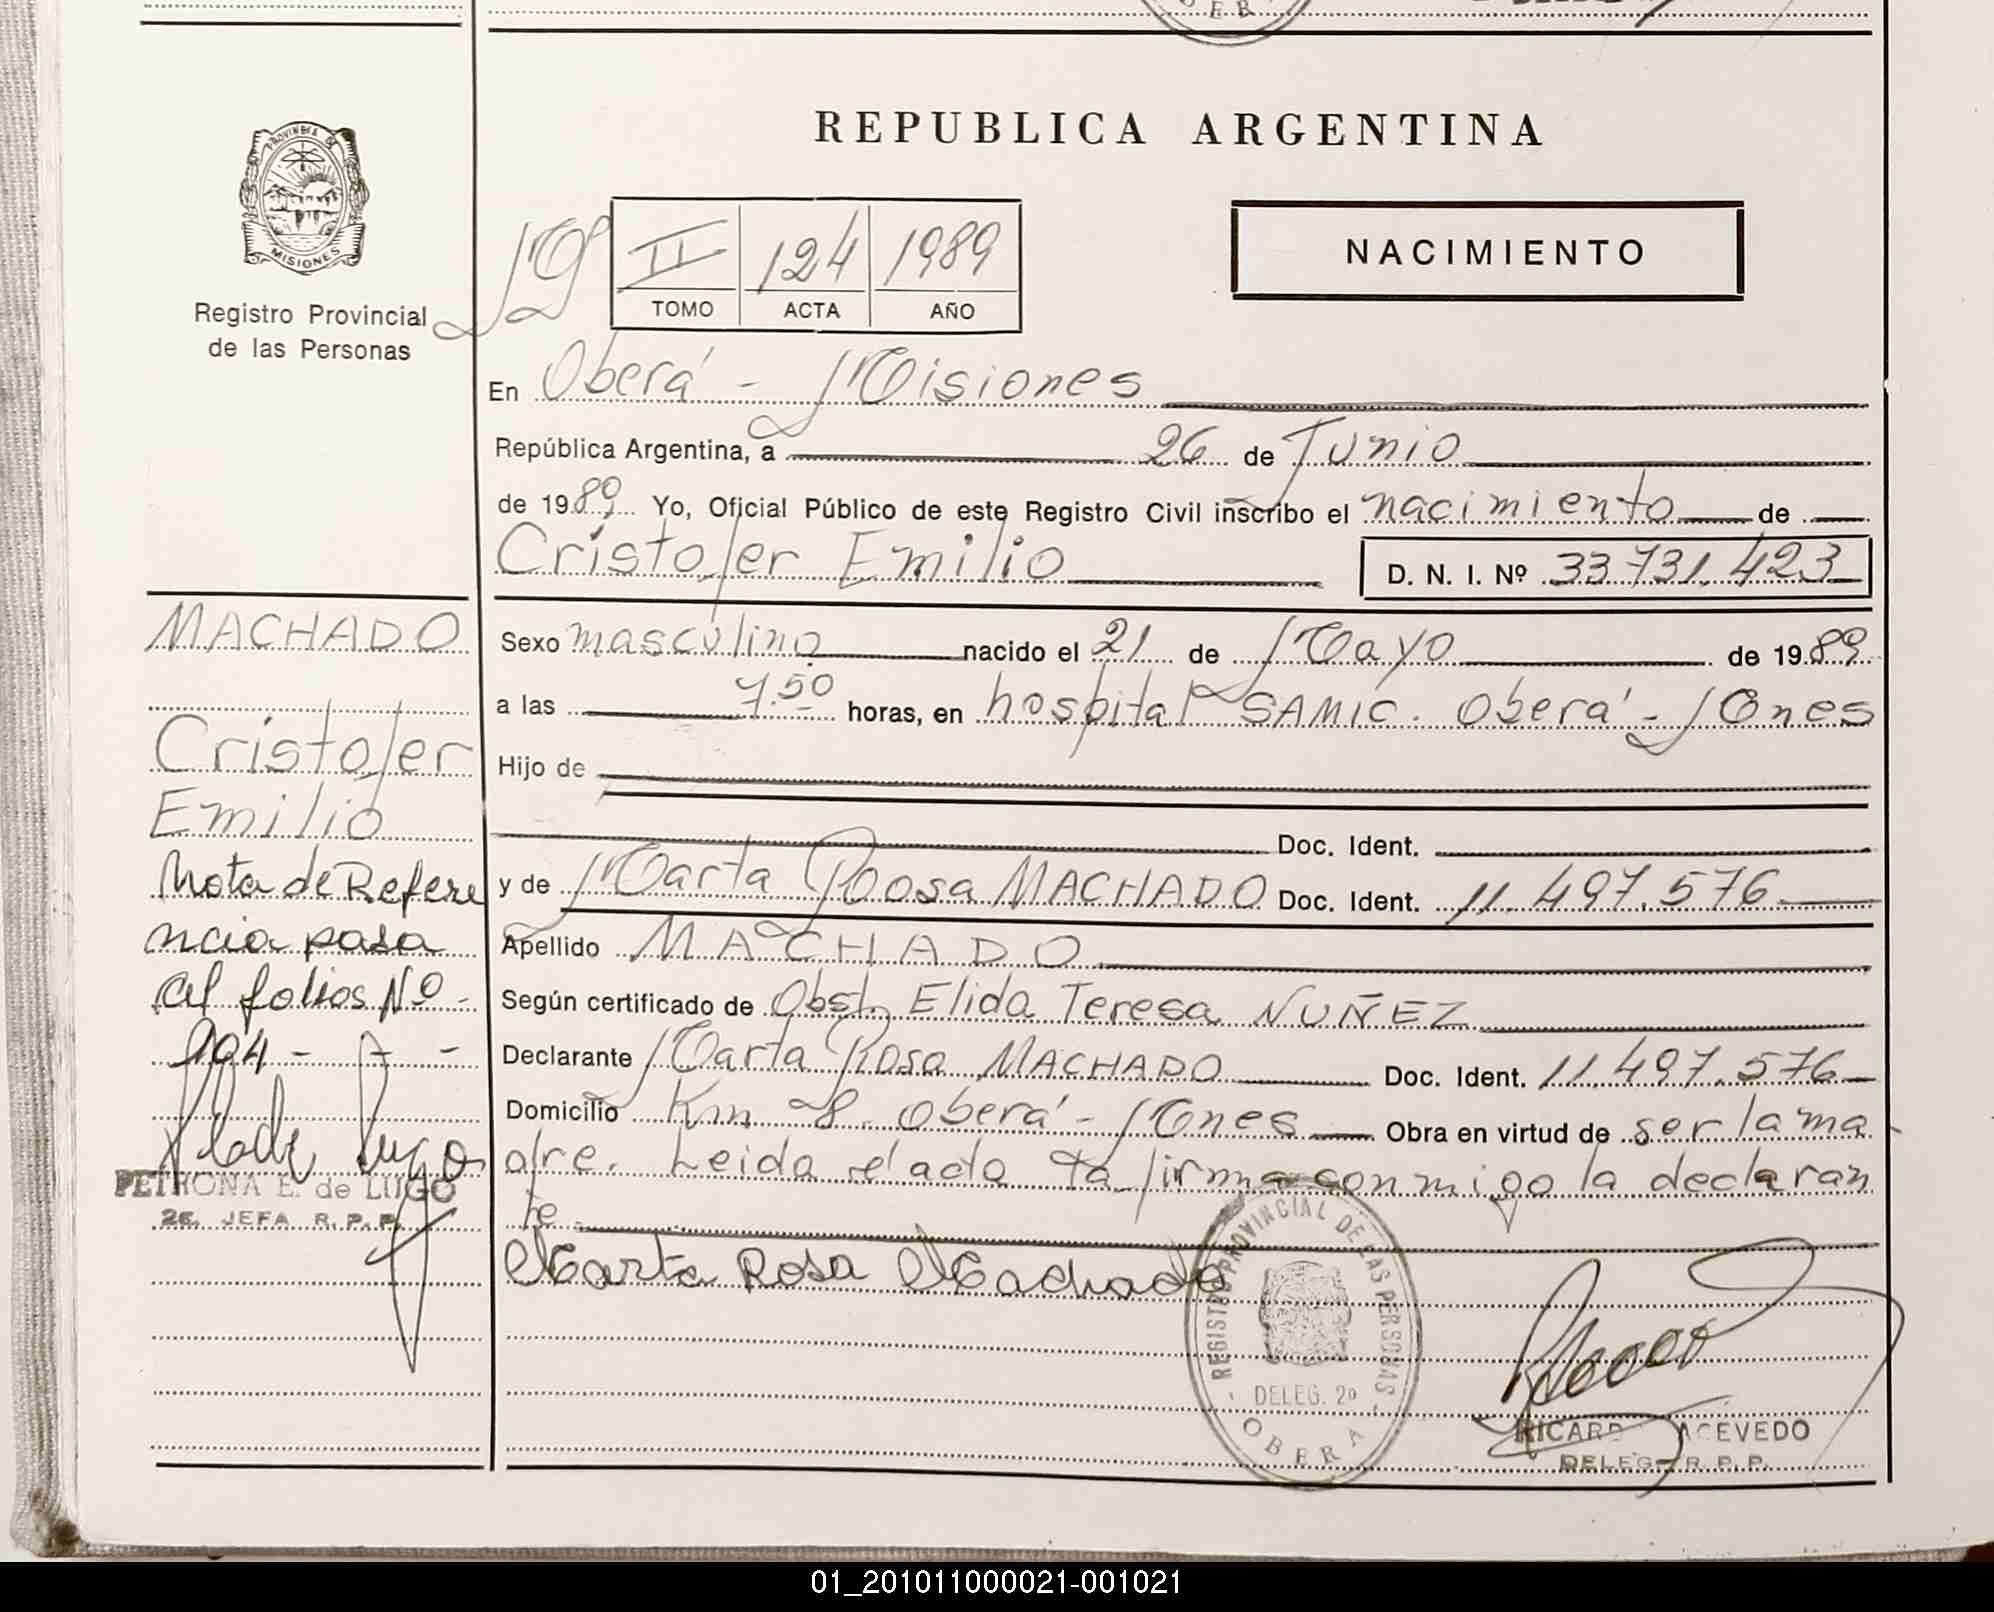 REPUBLICA ARGENTINA
PROVINCIA DE
MISIONES
Registro Provincial
de las Personas
II 124 1989
TOMO ACTA AÑO
NACIMIENTO
En Oberá - Misiones
República Argentina, a 26 de Junio
de 1989 Yo, Oficial Público de este Registro Civil inscribo el nacimiento de
Cristofer Emilio D. N. I. Nº 33.731.423
Sexo masculino nacido el 21 de Mayo de 1989
a las 7.50 horas, en hospital SAMIC. Oberá - Mnes
Hijo de
Doc. Ident.
y de Marta Roosa MACHADO Doc. Ident. 11.497.576
Apellido MACHADO
Según certificado de Obst. Elida Teresa NUÑEZ
Declarante Marta Rosa MACHADO Doc. Ident. 11.497.576
Domicilio Km 8. Oberá - Mnes Obra en virtud de ser la ma
dre. Leida el acta la firma conmigo la declaran
te
Marta Rosa Machado
MACHADO
Cristofer
Emilio
Nota de Refere
ncia pasa
al folios Nº
PETRONA E. de LUGO
2a. JEFA R.P.P.
- REGISTRO PROVINCIAL DE LAS PERSONAS -
DELEG. 2º
OBERA
RICARD ACEVEDO
DELEG. R.P.P.
01_201011000021-001021